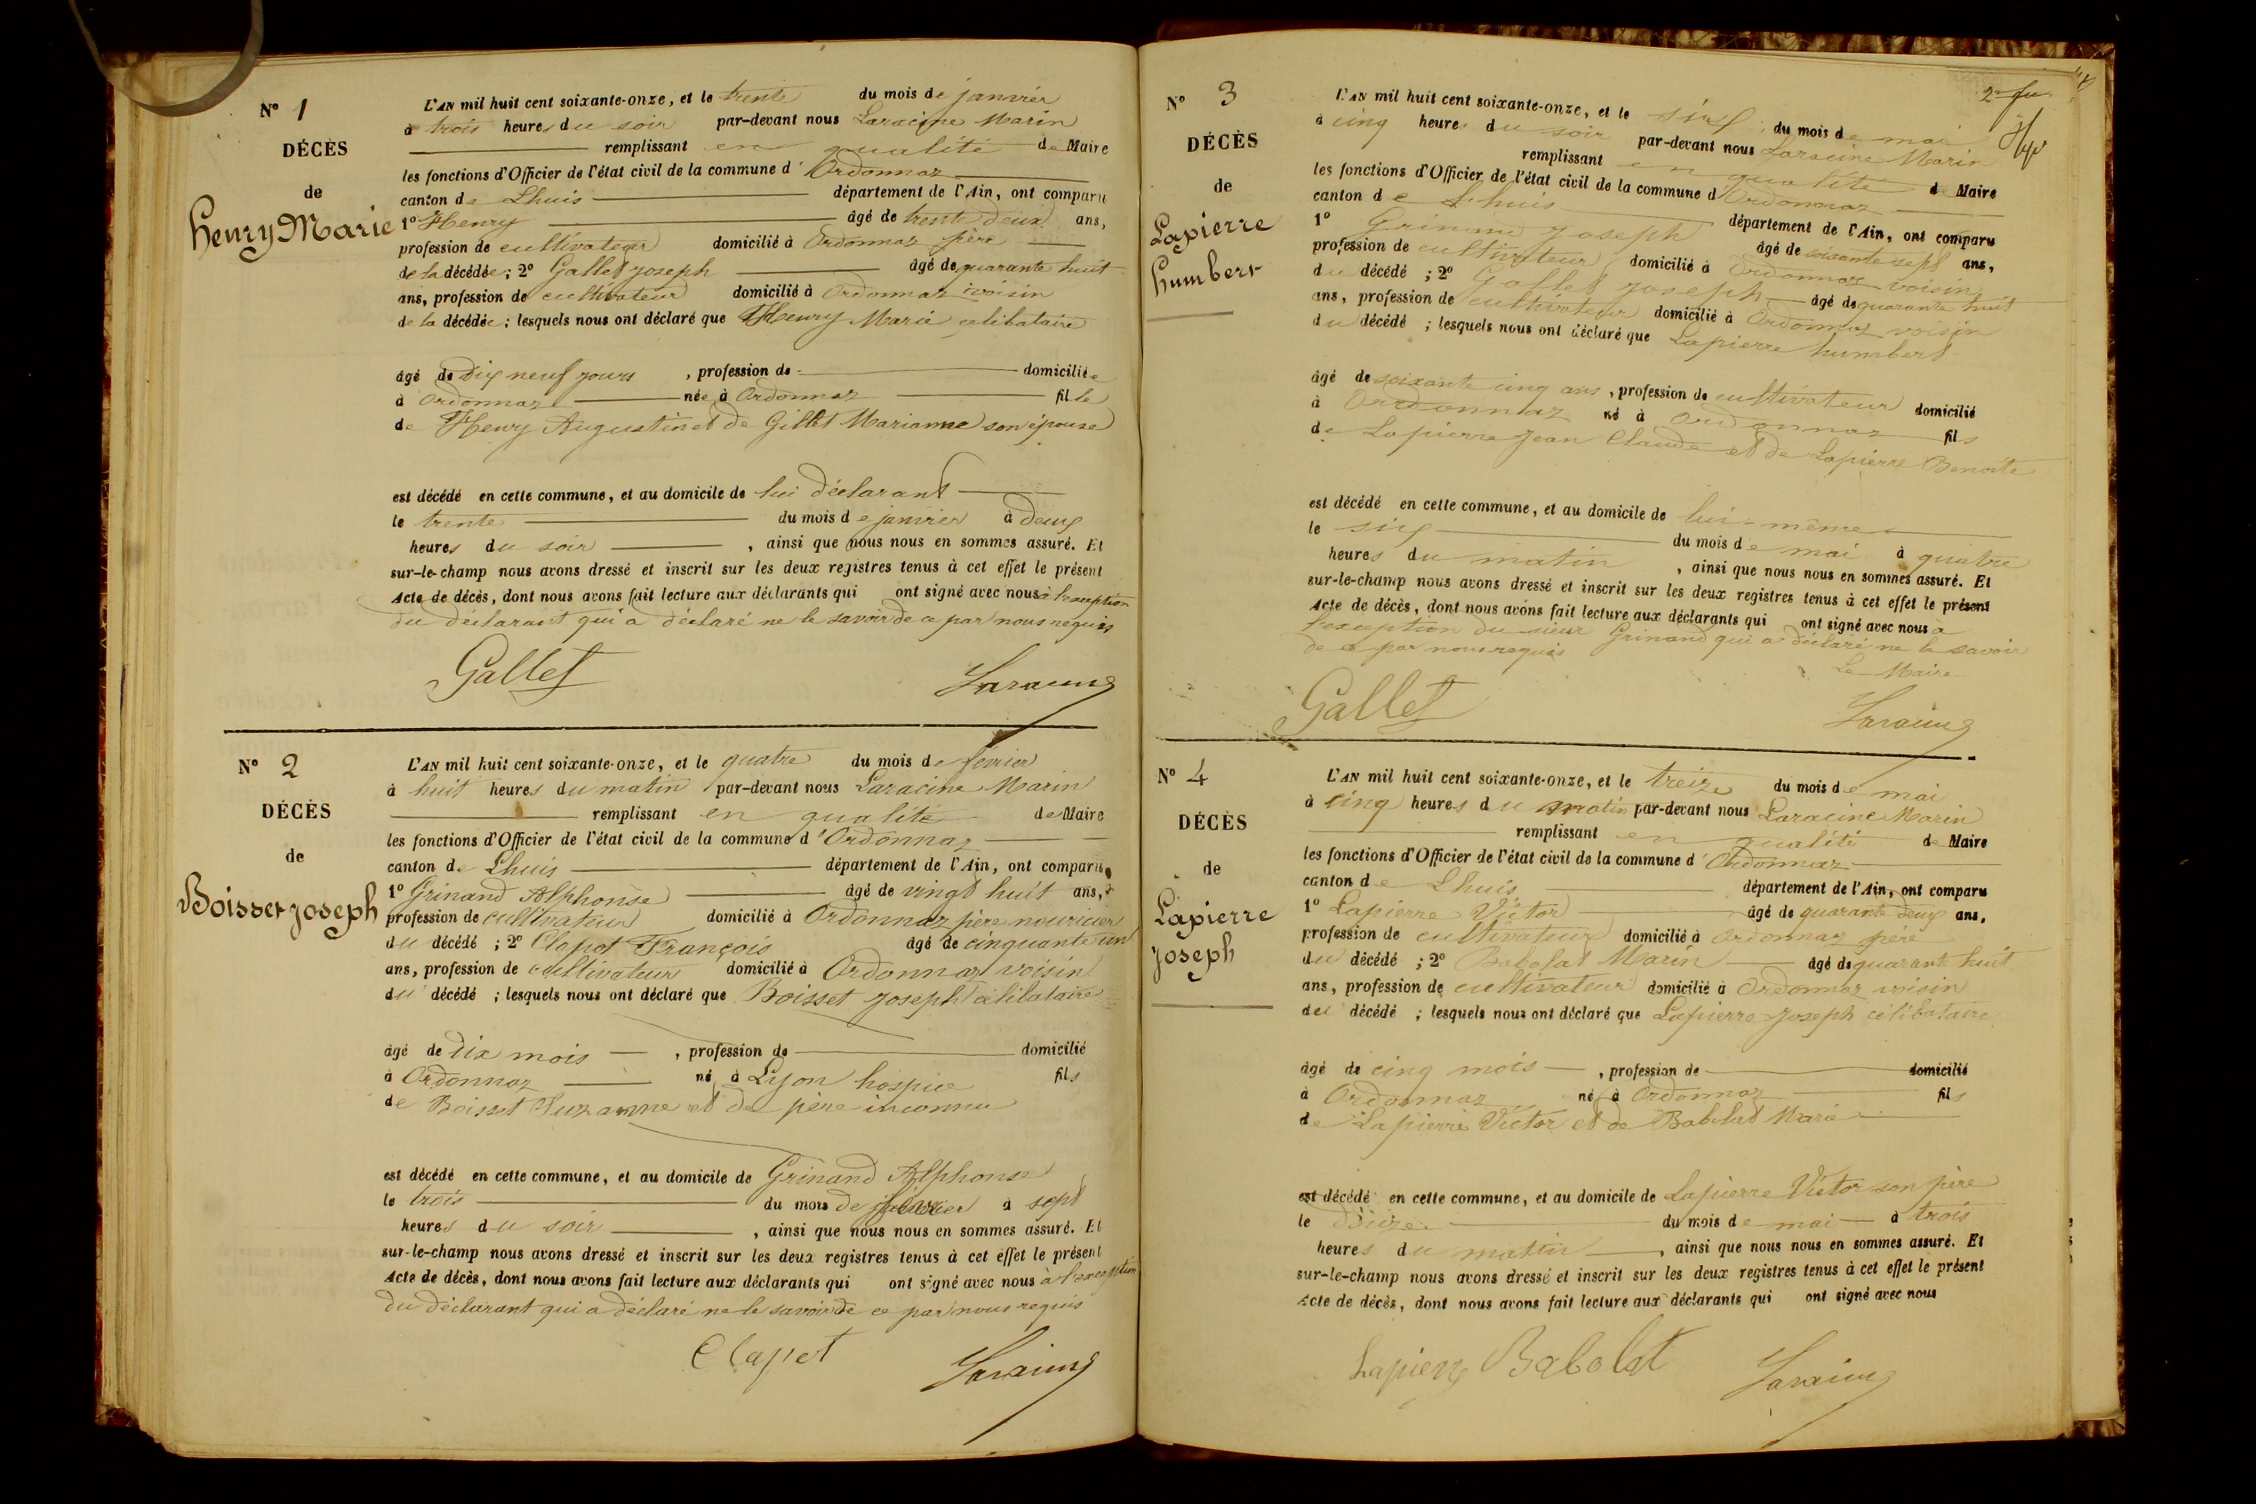 N° 1
DÉCÈS
de
Henry Marie
L'AN mil huit cent soixante-onze, et le trente du mois de janvier
à trois heures du soir par-devant nous Laracine Marin
remplissant en qualité de Maire
les fonctions d'Officier de l'état civil de la commune d'Ordonnaz
canton de Lhuis département de l'Ain, ont comparu
1° Henry âgé de trente deux ans,
profession de cultivateur domicilié à Ordonnaz père
de la décédée ; 2° Gallet joseph âgé de quarante huit
ans, profession de cultivateur domicilié à Ordonnaz voisin
de la décédée ; lesquels nous ont déclaré que Henry Marie célibataire
âgé de Dix neuf jours , profession de domiciliée
à Ordonnaz née à Ordonnaz fille
de Henry Augustin et de Gillet Marianne son épouse
est décédé en cette commune, et au domicile de lui déclarant
le trente du mois de janvier à deux
heures du soir , ainsi que nous nous en sommes assuré. Et
sur-le-champ nous avons dressé et inscrit sur les deux registres tenus à cet effet le présent
Acte de décès, dont nous avons fait lecture aux déclarants qui ont signé avec nous à
du déclarant qui a déclaré ne le savoir de ce par nous requis
Gallet Laracine
N° 2
DÉCÈS
de
Boisset joseph
L'AN mil huit cent soixante-onze, et le quatre du mois de fevrier
à huit heures du matin par-devant nous Laracine Marin
remplissant en qualité de Maire
les fonctions d'Officier de l'état civil de la commune d'Ordonnaz
canton de Lhuis département de l'Ain, ont comparu
1° Grinand Alphonse âgé de vingt huit ans,
profession de cultivateur domicilié à Ordonnaz père nouricier
du décédé ; 2° Clapot François âgé de cinquante un
ans, profession de cultivateur domicilié à Ordonnaz voisin
du décédé ; lesquels nous ont déclaré que Boisset joseph célibataire
âgé de dix mois , profession de domicilié
à Ordonnaz né à Lyon hospice fils
de Boisset Suzanne et de père inconnu
est décédé en cette commune, et au domicile de Grinand Alphonse
le trois du mois de à sept
heures du soir , ainsi que nous nous en sommes assuré. Et
sur-le-champ nous avons dressé et inscrit sur les deux registres tenus à cet effet le présent
Acte de décès, dont nous avons fait lecture aux déclarants qui ont signé avec nous à l'exception
du déclarant qui a déclaré ne le savoir de ce par nous requis
Clapet Laracine
N° 3
DÉCÈS
de
Lapierre
humbert
L'AN mil huit cent soixante-onze, et le six du mois de mai
à cinq heures du soir par-devant nous Laracine Marin
remplissant en qualité de Maire
les fonctions d'Officier de l'état civil de la commune d'Ordonnaz
canton de Lhuis département de l'Ain, ont comparu
1° Grinand joseph âgé de soixante sept ans,
profession de cultivateur domicilié à Ordonnaz voisin
du décédé ; 2° Gallet joseph âgé de quarante huit
ans, profession de cultivateur domicilié à Ordonnaz voisin
du décédé ; lesquels nous ont déclaré que Lapierre humbert
âgé de soixante cinq ans , profession de cultivateur domicilié
à Ordonnaz né à Ordonnaz fils
de Lapierre Jean Claude et de Lapierre Benoite
est décédé en cette commune, et au domicile de lui-même
le six du mois de mai à quatre
heures du matin , ainsi que nous nous en sommes assuré. Et
sur-le-champ nous avons dressé et inscrit sur les deux registres tenus à cet effet le présent
Acte de décès, dont nous avons fait lecture aux déclarants qui ont signé avec nous à
l'exception du sieur Grinand qui a déclaré ne le savoir
de ce par nous requis
Le Maire
Gallet Laracine
N° 4
DÉCÈS
de
Lapierre
joseph
L'AN mil huit cent soixante-onze, et le treize du mois de mai
à cinq heures du matin par-devant nous Laracine Marin
remplissant en qualité de Maire
les fonctions d'Officier de l'état civil de la commune d'Ordonnaz
canton de Lhuis département de l'Ain, ont comparu
1° Lapierre Victor âgé de quarante deux ans,
profession de cultivateur domicilié à Ordonnaz père
du décédé ; 2° Babolat Marin âgé de quarant huit
ans, profession de cultivateur domicilié à Ordonnaz voisin
du décédé ; lesquels nous ont déclaré que Lapierre Joseph célibataire
âgé de cinq mois , profession de domicilié
à Ordonnaz né à Ordonnaz fils
de Lapierre Victor et de Babolat Marie
est décédé en cette commune, et au domicile de Lapierre Victor son père
le du mois de mai à trois
heures du matin , ainsi que nous nous en sommes assuré. Et
sur-le-champ nous avons dressé et inscrit sur les deux registres tenus à cet effet le présent
Acte de décès, dont nous avons fait lecture aux déclarants qui ont signé avec nous
Lapierre Babolat Laracine